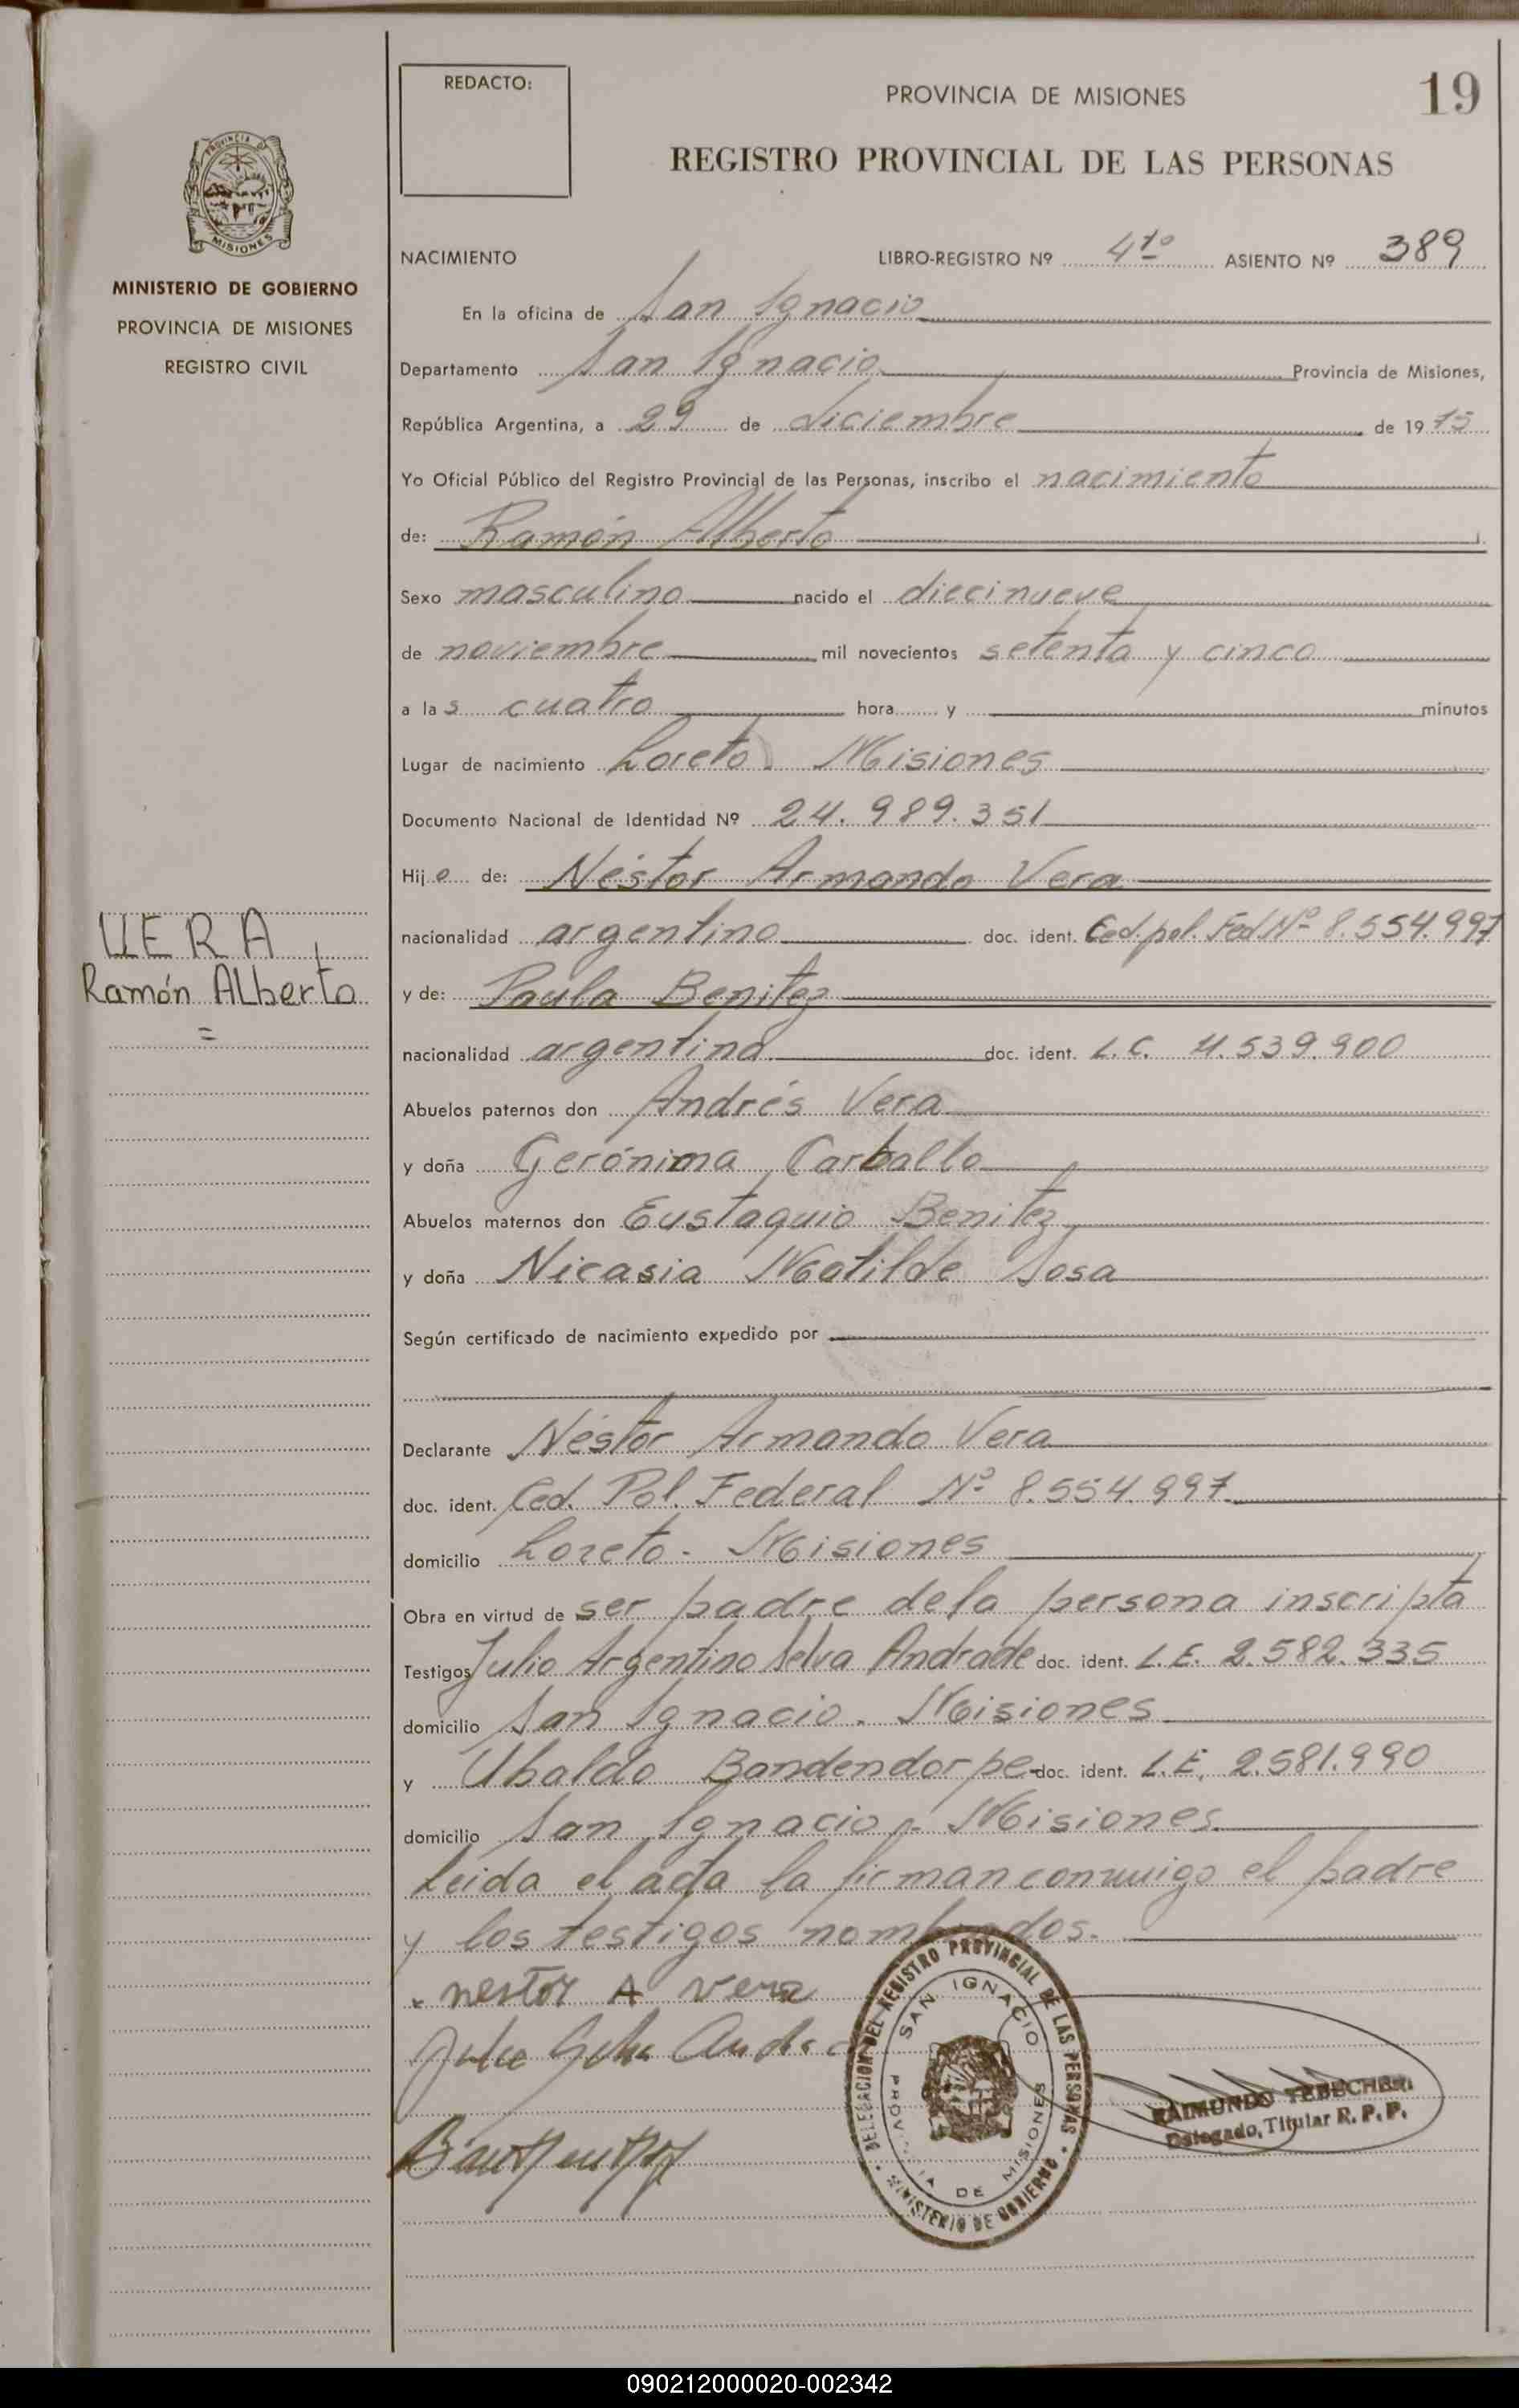 REDACTO:
PROVINCIA DE MISIONES
19
REGISTRO PROVINCIAL DE LAS PERSONAS
PROVINCIA D
MISIONES
MINISTERIO DE GOBIERNO
PROVINCIA DE MISIONES
REGISTRO CIVIL
NACIMIENTO LIBRO-REGISTRO Nº 4to ASIENTO Nº 389
En la oficina de San Ignacio
Departamento San Ignacio Provincia de Misiones,
República Argentina, a 29 de diciembre de 1975
Yo Oficial Público del Registro Provincial de las Personas, inscribo el nacimiento
de: Ramón Alberto
Sexo masculino nacido el diecinueve
de noviembre mil novecientos setenta y cinco
a las cuatro hora y minutos
Lugar de nacimiento Loreto. Misiones
Documento Nacional de Identidad Nº 24.989.351
Hijo de: Néstor Armando Vera
nacionalidad argentino doc. ident. Ced. pol. Fed Nº 8.554.997
VERA,
Ramón Alberto
=
y de: Paula Benitez
nacionalidad argentina doc. ident. L.C. 4.539.900
Abuelos paternos don Andrés Vera
y doña Gerónima Carballo
Abuelos maternos don Eustaquio Benitez
y doña Nicasia Matilde Sosa
Según certificado de nacimiento expedido por
Declarante Néstor Armando Vera
doc. ident. Ced. Pol. Federal Nº 8.554.997
domicilio Loreto - Misiones
Obra en virtud de ser padre de la persona inscripta
Testigos Julio Argentino Selva Andrade doc. ident. L.E. 2.582.335
domicilio San Ignacio - Misiones
y Ubaldo Bandendorpe doc. ident. L.E. 2.581.990
domicilio San Ignacio - Misiones
Leida el acta la firman conmigo el padre
y los testigos nombrados.
nestor A vera
DELEGACION DEL REGISTRO PROVINCIAL DE LAS PERSONAS
SAN IGNACIO
PROVINCIA DE MISIONES
MINISTERIO DE GOBIERNO
RAIMUNDO
Delegado, Titular R. P. P.
090212000020-002342